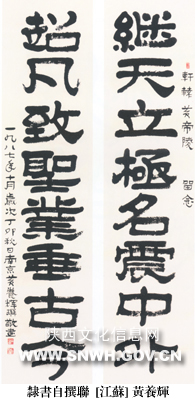 軒轅黃帝陵 留念
継天立極名震中外
超凡致聖業垂古今
一九八七年十月歲次丁卯秋日南京黃養輝撰敬書
陕西文化信息网
WWW.SNWH.GOV.CN
隸書自撰聯 [江蘇] 黃養輝